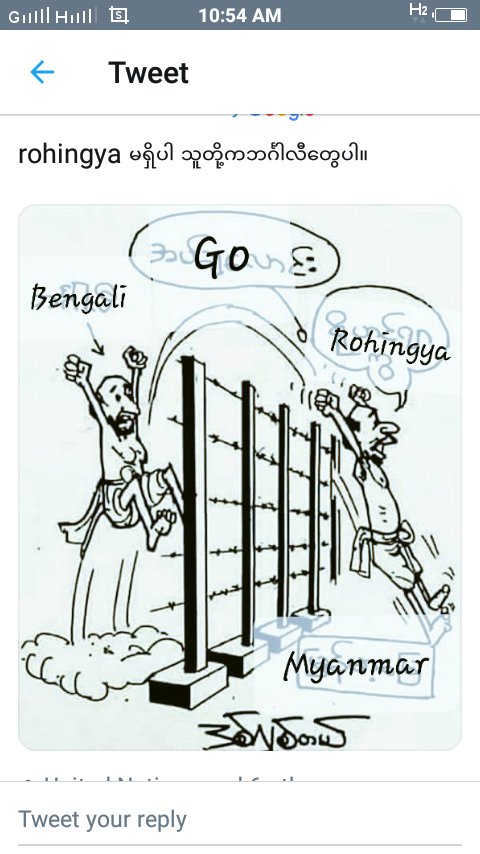 10:54 AM
H2
Tweet
rohingya မရှိပါ သူတို့ကဘင်္ဂါလီတွေပါ။
Go
Bengali
Rohingya
Myanmar
Tweet your reply